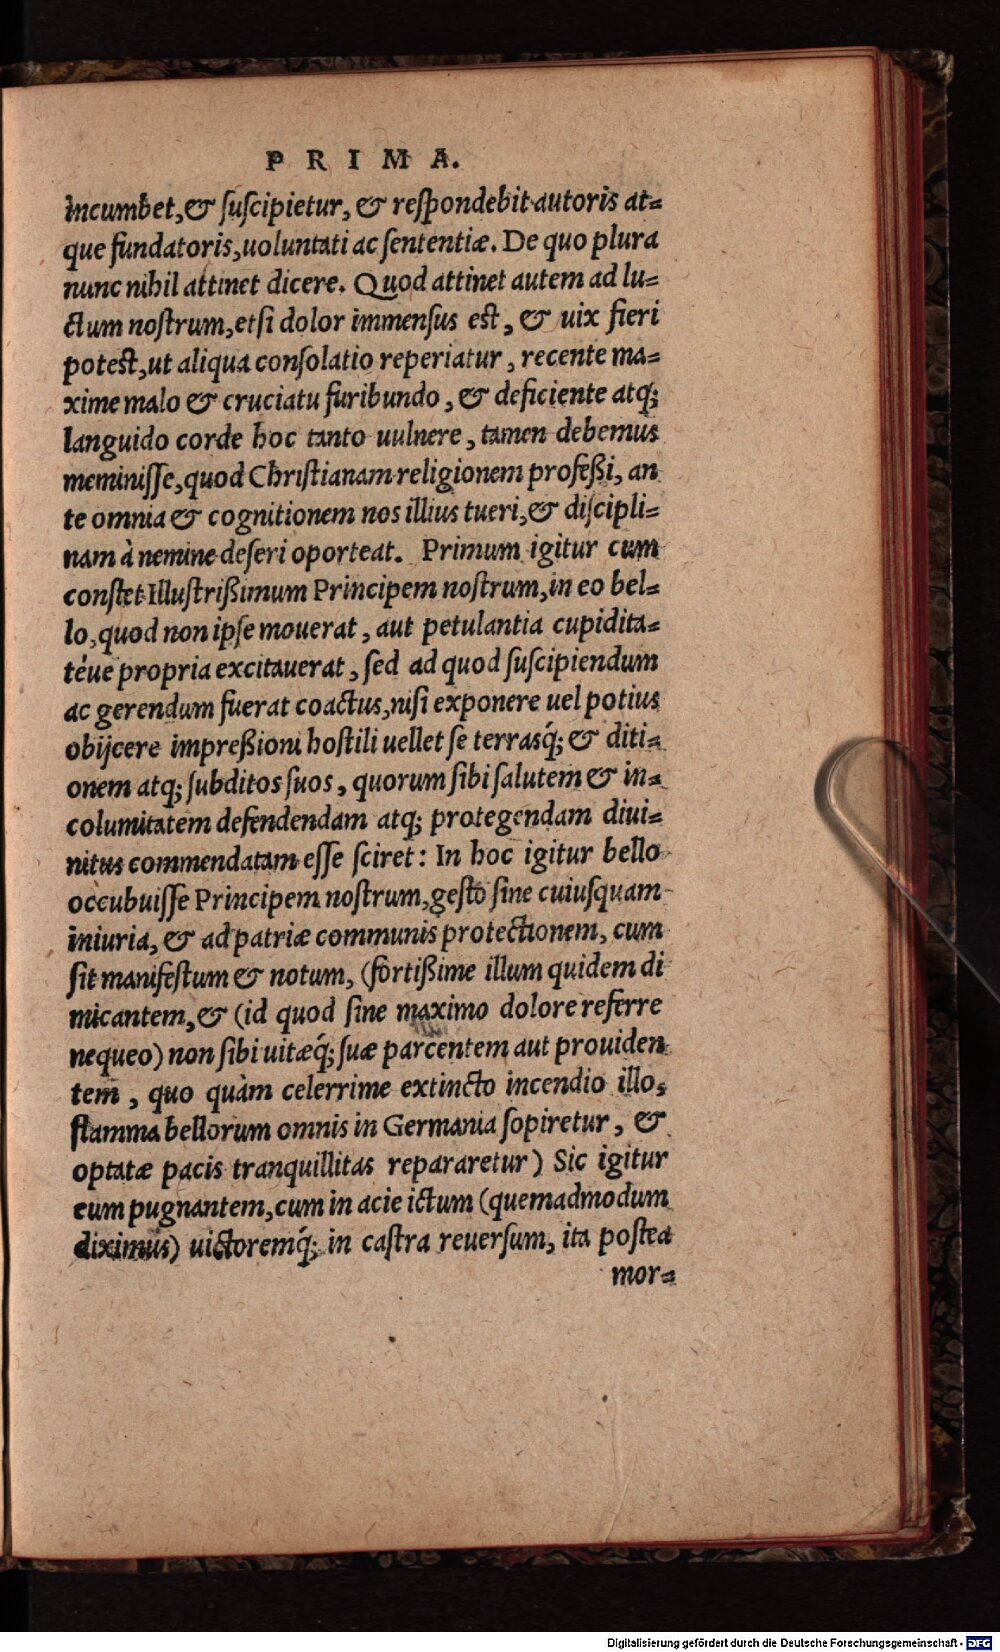 PRIMA.
incumbet,& ſuſcipietur, & reſpondebit autoris at=
que fundatoris,uoluntati ac ſententiæ. De quo plura
nunc nihil attinet dicere. Quod attinet autem ad lu=
ctum noſtrum,etſi dolor immenſus eſt, & uix fieri
poteſt,ut aliqua conſolatio reperiatur, recente ma=
xime malo & cruciatu furibundo, & deficiente atq;
languido corde hoc tanto uulnere, tamen debemus
meminiſſe,quod Chriſtianam religionem profeßi, an
te omnia & cognitionem nos illius tueri,& diſcipli=
nam à nemine deſeri oporteat. Primum igitur cum
conſtet Illuſtrißimum Principem noſtrum,in eo bel=
lo,quod non ipſe mouerat, aut petulantia cupidita=
téue propria excitauerat, ſed ad quod ſuſcipiendum
ac gerendum fuerat coactus,niſi exponere uel potius
obijcere impreßioni hoſtili uellet ſe terrasq́; & diti=
onem atq; ſubditos ſuos, quorum ſibi ſalutem & in=
columitatem defendendam atq; protegendam diui=
nitus commendatam eſſe ſciret: In hoc igitur bello
occubuiſſe Principem noſtrum,geſto ſine cuiuſquam
iniuria, & ad patriæ communis protectionem, cum
ſit manifeſtum & notum, (fortißime illum quidem di
micantem,& (id quod ſine maximo dolore referre
nequeo) non ſibi uitæq́; ſuæ parcentem aut prouiden
tem, quo quàm celerrime extincto incendio illo,
flamma bellorum omnis in Germania ſopiretur, &
optatæ pacis tranquillitas repararetur) Sic igitur
eum pugnantem,cum in acie ictum (quemadmodum
diximus) uictoremq́; in caſtra reuerſum, ita poſtea
mor=
Digitalisierung gefördert durch die Deutsche Forschungsgemeinschaft - DFG